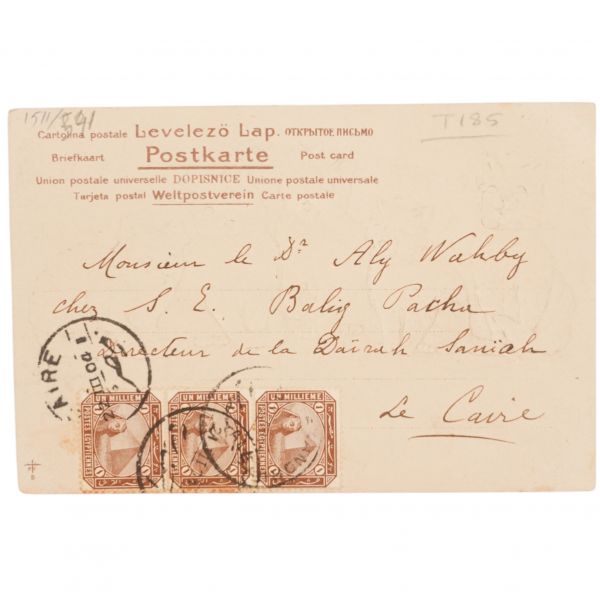 1511/
T185
Cartolina postale Levelezö Lap. ОТКРЫТОЕ ПИСЬМО
Briefkaart Postkarte Post card
Union postale universelle DOPISNICE Unione postale universale
Tarjeta postal Weltpostverein Carte postale
Monsieur le Dr Aly Wahby
chez S. E. Balig Pacha
Directeur de la Daïrah Saniah
Le Caire
AIRE
UN MILLIEME UN MILLIEME UN MILLIEME
POSTES EGYPTIENNES POSTES EGYPTIENNES POSTES EGYPTIENNES